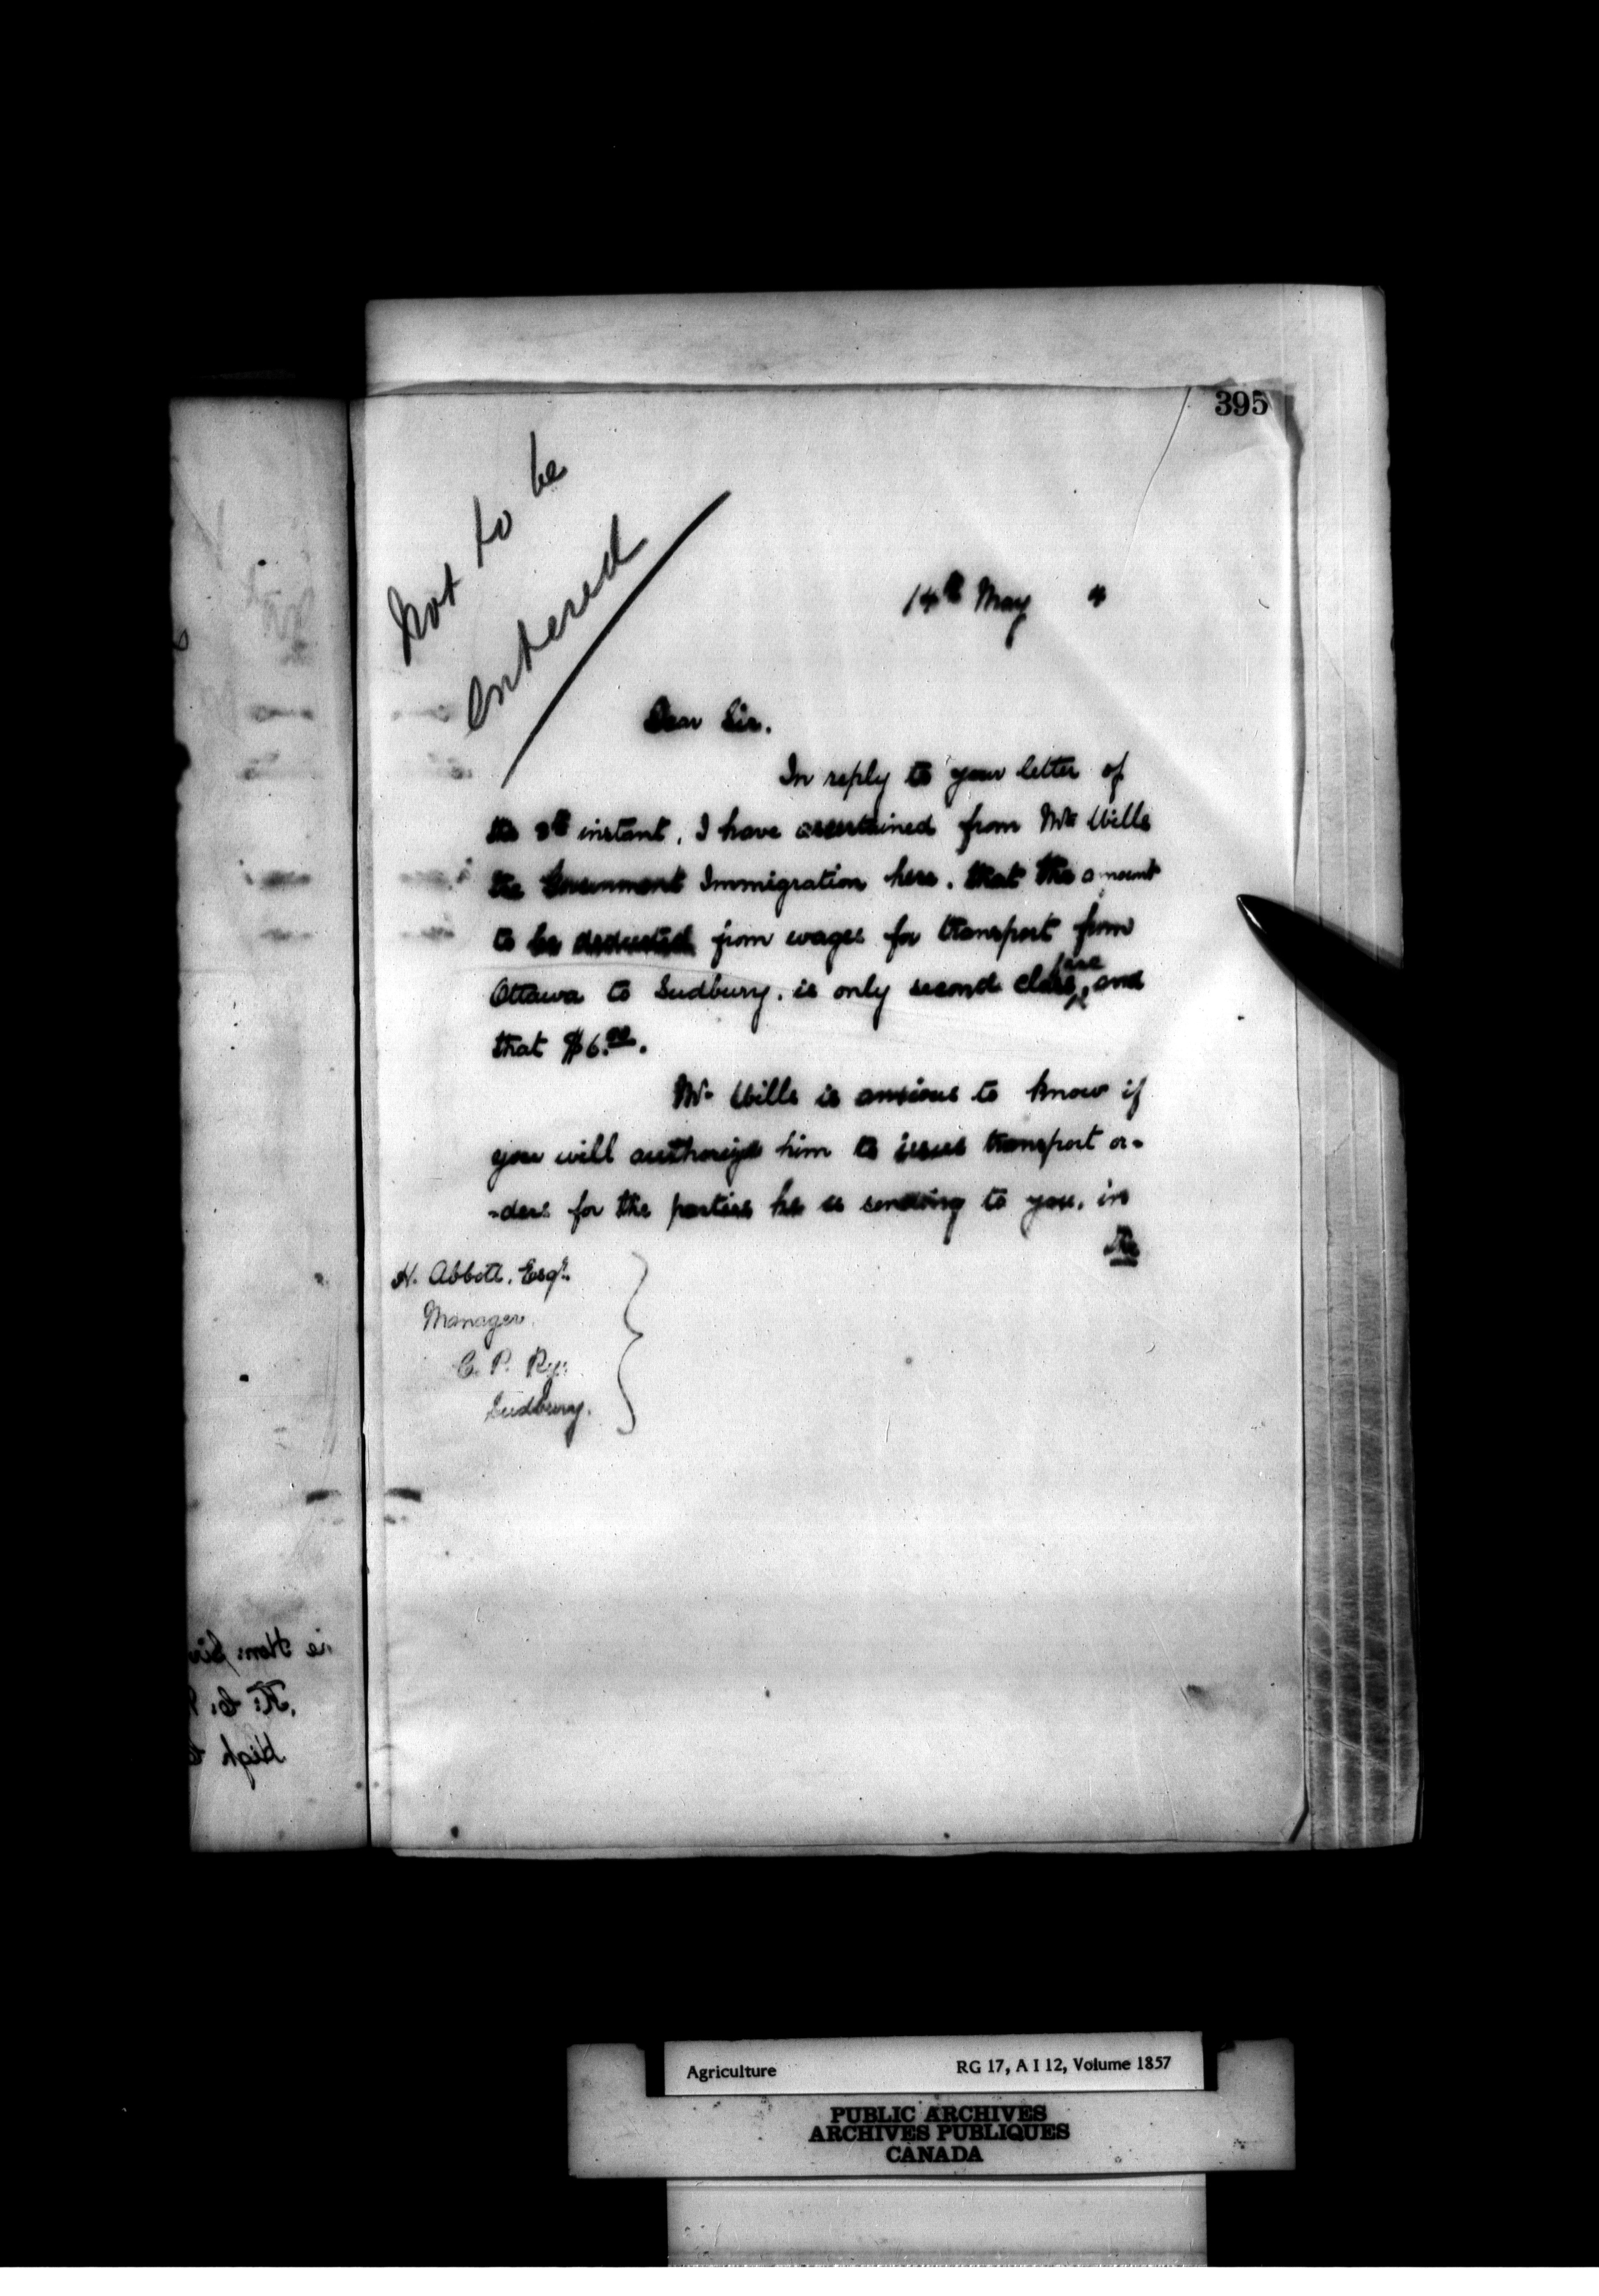 395
Not to be
entered
14th May 4
Dear Sir.
In reply to your letter of
the 8th instant, I have ascertained from Mr. Wills
the Government Immigration here, that the amount
to be deducted from wages for transport from
Ottawa to Sudbury, is only second class fare, and
that $6.00.
Mr. Wills is anxious to know if
you will authorize him to issue transport or-
-ders for the parties he is sending to you, in
the
H. Abbott, Esqr.
Manager
C. P. Ry:
Sudbury.
Hon: Sir
High
Agriculture RG 17, A I 12, Volume 1857
PUBLIC ARCHIVES
ARCHIVES PUBLIQUES
CANADA